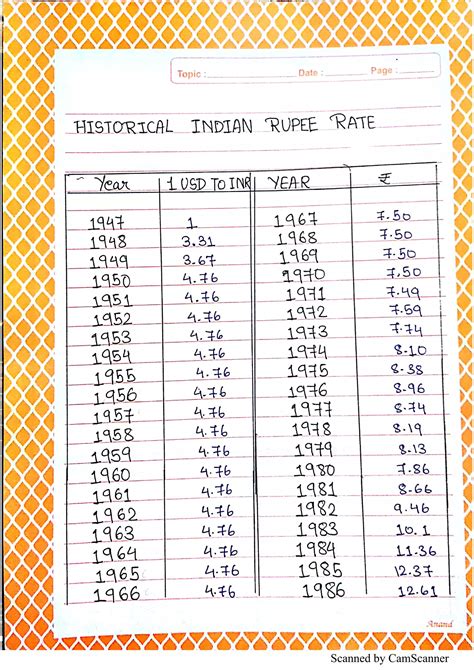 Topic : Date : Page :
HISTORICAL INDIAN RUPEE RATE
Year 1 USD TO INR YEAR ₹
1947 1 1967 7.50
1948 3.31 1968 7.50
1949 3.67 1969 7.50
1950 4.76 1970 7.50
1951 4.76 1971 7.49
1952 4.76 1972 7.59
1953 4.76 1973 7.74
1954 4.76 1974 8.10
1955 4.76 1975 8.38
1956 4.76 1976 8.96
1957 4.76 1977 8.74
1958 4.76 1978 8.19
1959 4.76 1979 8.13
1960 4.76 1980 7.86
1961 4.76 1981 8.66
1962 4.76 1982 9.46
1963 4.76 1983 10.1
1964 4.76 1984 11.36
1965 4.76 1985 12.37
1966 4.76 1986 12.61
Anand
Scanned by CamScanner